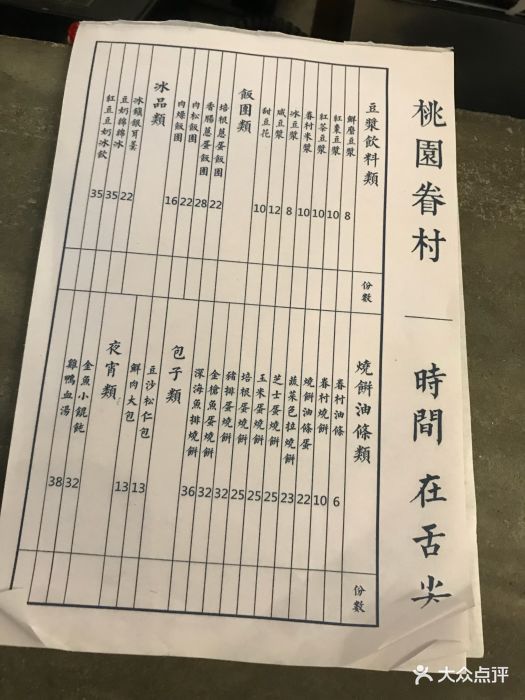 桃園眷村 —— 時間 在舌尖
豆漿飲料類 份數
鮮磨豆漿 8
紅棗豆漿 10
紅茶豆漿 10
眷村米漿 10
冰豆漿 8
咸豆漿 12
甜豆花 10
飯團類
培根蔥蛋飯團 22
香腸蔥蛋飯團 28
肉松飯團 22
肉燥飯團 16
冰品類
冰鎮銀耳羹 22
豆奶綿綿冰 35
紅豆豆奶冰飲 35
燒餅油條類 份數
眷村油條 6
眷村燒餅 10
燒餅油條蛋 22
蔬菜色拉燒餅 23
芝士蛋燒餅 25
玉米蛋燒餅 25
培根蛋燒餅 25
豬排蛋燒餅 32
金槍魚蛋燒餅 32
深海魚排燒餅 36
包子類
豆沙松仁包 13
鮮肉大包 13
夜宵類
金魚小餛飩 32
雞鴨血湯 38
大众点评